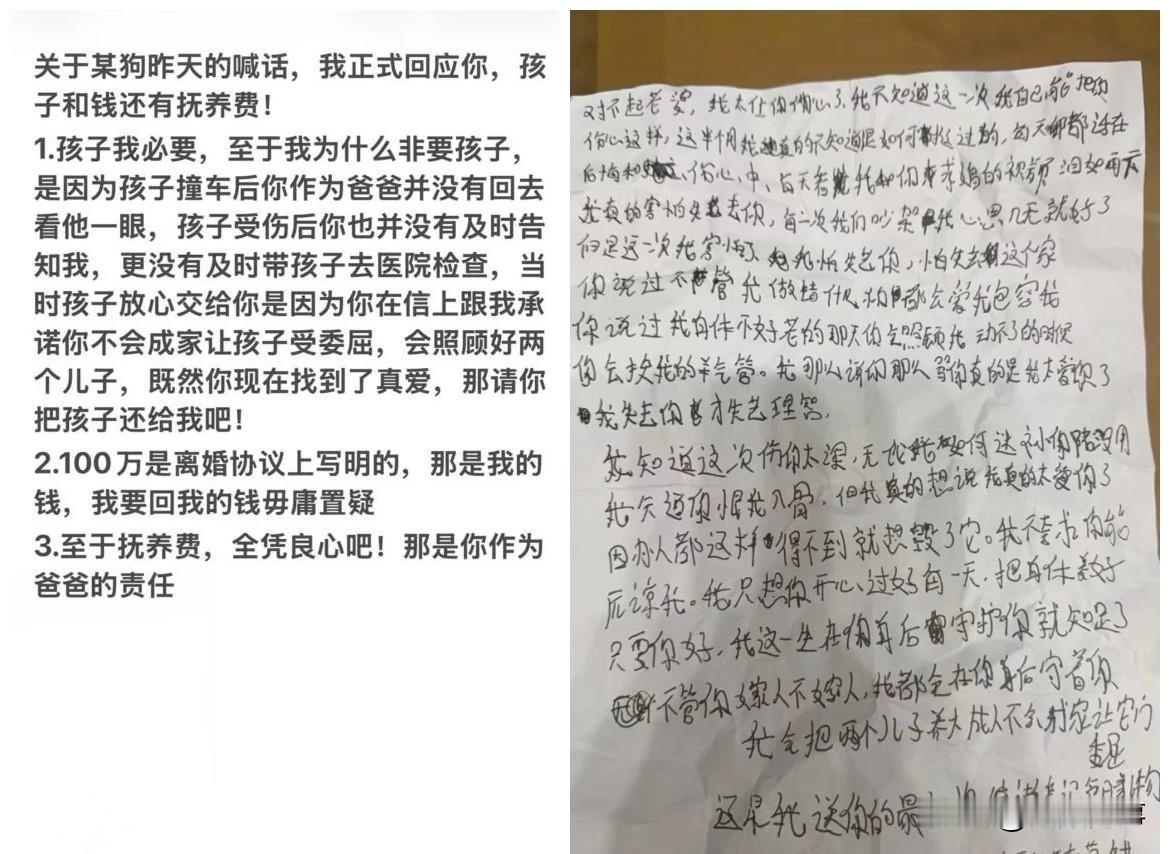 关于某狗昨天的喊话，我正式回应你，孩
子和钱还有抚养费！
1.孩子我必要，至于我为什么非要孩子，
是因为孩子撞车后你作为爸爸并没有回去
看他一眼，孩子受伤后你也并没有及时告
知我，更没有及时带孩子去医院检查，当
时孩子放心交给你是因为你在信上跟我承
诺你不会成家让孩子受委屈，会照顾好两
个儿子，既然你现在找到了真爱，那请你
把孩子还给我吧！
2.100万是离婚协议上写明的，那是我的
钱，我要回我的钱毋庸置疑
3.至于抚养费，全凭良心吧！那是你作为
爸爸的责任
对不起老婆，我太让你伤心了，我不知道这一次我自己能把你
伤心这样，这半个月我真的不知道是如何过的，每天都活在
后悔和伤心中，每天看我和你的视频泪如雨天
我真的害怕失去你，每一次我们吵架我心思几天就好了
但是这一次我害怕了，我怕失去你，怕失去这个家
你说过不管我做错什么都会爱我包容我
你说过我身体不好老的那天你会照顾我 动不了的时候
你会换我的。我那么说你那么骂你真的是我太爱你了
我失去你才失去理智。
我知道这次伤你太深，无论我如何达补你都没用
我知道你恨我入骨，但我真的想说我真的太爱你了
因为人都这样得不到就想毁了它。我不奢求你能
原谅我。我只想你开心过好每一天，把身体养好
只要你好，我这一生在你身后守护你就知足了
不管你嫁人不嫁人，我都会在你身后守着你
我会把两个儿子养大成人不会成家让它们
委屈
这是我送你的最